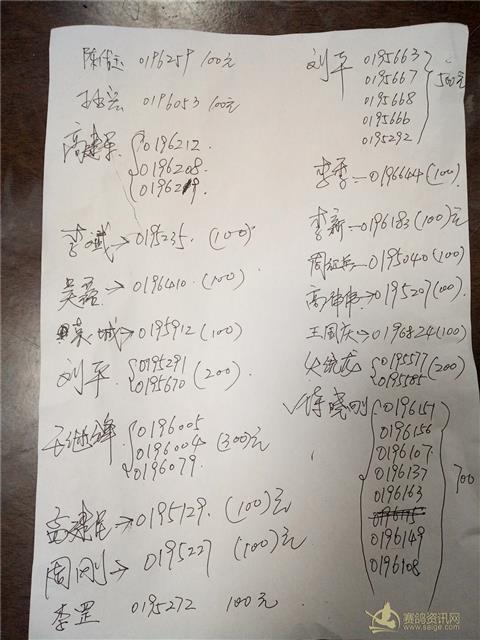 陈 0196259 100元
0196053 100元
高建军 0196212
0196208
0196219
李斌→0195235. (100)
吴磊→ 0196410. (100)
城→0195912 (100)
刘平 0195291 (200)
0195670
王继锋 0196005
0196004 (300)元
0196079.
高建 →0195129. (100)元
周刚→ 0195227 (100)元
李罡 0195272 100元
刘平 0195663 500元
0195667
0195668
0195666
0195292
李季—0196644(100).
李新—0196183(100)元
周红兵—0195040(100)
高 伟→0195207(100).
王国庆→0196824(100)
龙 0195577 (200)
0195785
徐晓刚 0196157
0196156
0196107
0196137 700
0196163
0196149
0196108
赛鸽资讯网
www.saige.com